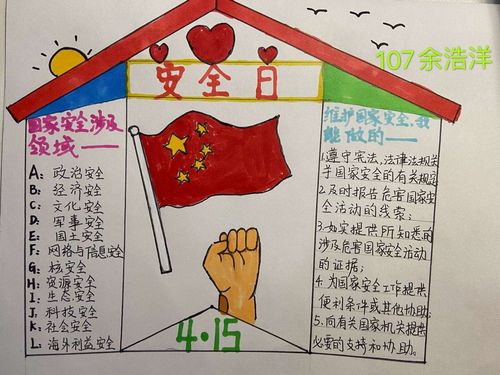 107余浩洋
安全日
国家安全涉及
领域——
A：政治安全
B：经济安全
C：文化安全
D：军事安全
E：国土安全
F：网络与信息安全
G：核安全
H：资源安全
I：生态安全
J：科技安全
K：社会安全
L：海外利益安全
维护国家安全，我
能做的——
1.遵守宪法，法律法规关
于国家安全的有关规定
2.及时报告危害国家安
全活动的线索；
3.如实提供所知悉的
涉及危害国家安全活动
的证据；
4.为国家安全工作提供
便利条件或其他协助
5.向有关国家机关提供
必要的支持和协助。
4·15